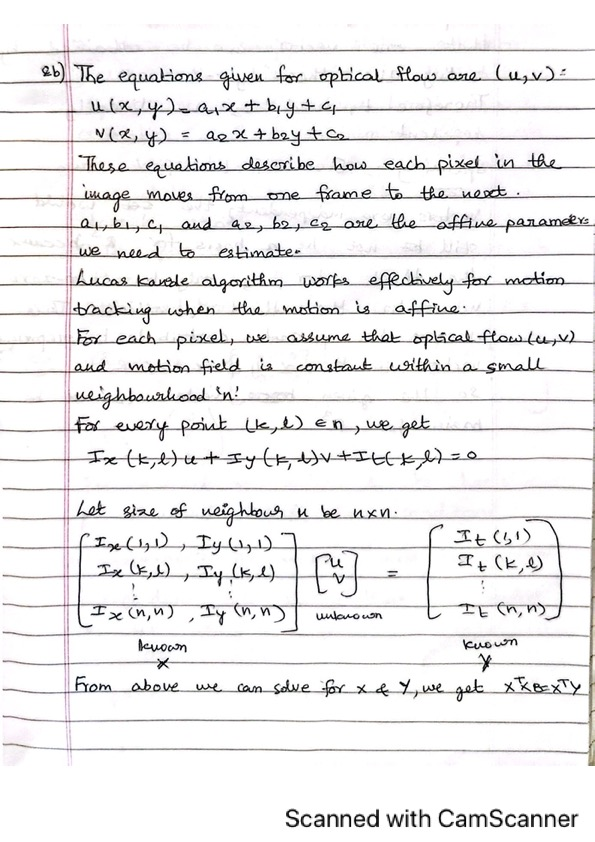 2b) The equations given for optical flow are (u,v) =
u(x, y) = a₁x + b₁y + c₁
v(x, y) = a₂x + b₂y + c₂
These equations describe how each pixel in the
image moves from one frame to the next.
a₁, b₁, c₁ and a₂, b₂, c₂ are the affine parameters
we need to estimate.
Lucas Kanade algorithm works effectively for motion
tracking when the motion is affine.
For each pixel, we assume that optical flow (u,v)
and motion field is constant within a small
neighbourhood 'n'.
For every point (k,l) ∈ n, we get
Ix (k,l) u + Iy (k,l) v + It (k,l) = 0
Let size of neighbour n be n×n.
[Ix (1,1) , Iy (1,1)] [u] = [It (1,1)]
[Ix (k,l) , Iy (k,l)] [v] [It (k,l)]
⋮ ⋮ ⋮
[Ix (n,n) , Iy (n,n)] unknown [It (n,n)]
known known
X Y
From above we can solve for X & Y, we get XᵀXB=XᵀY
Scanned with CamScanner